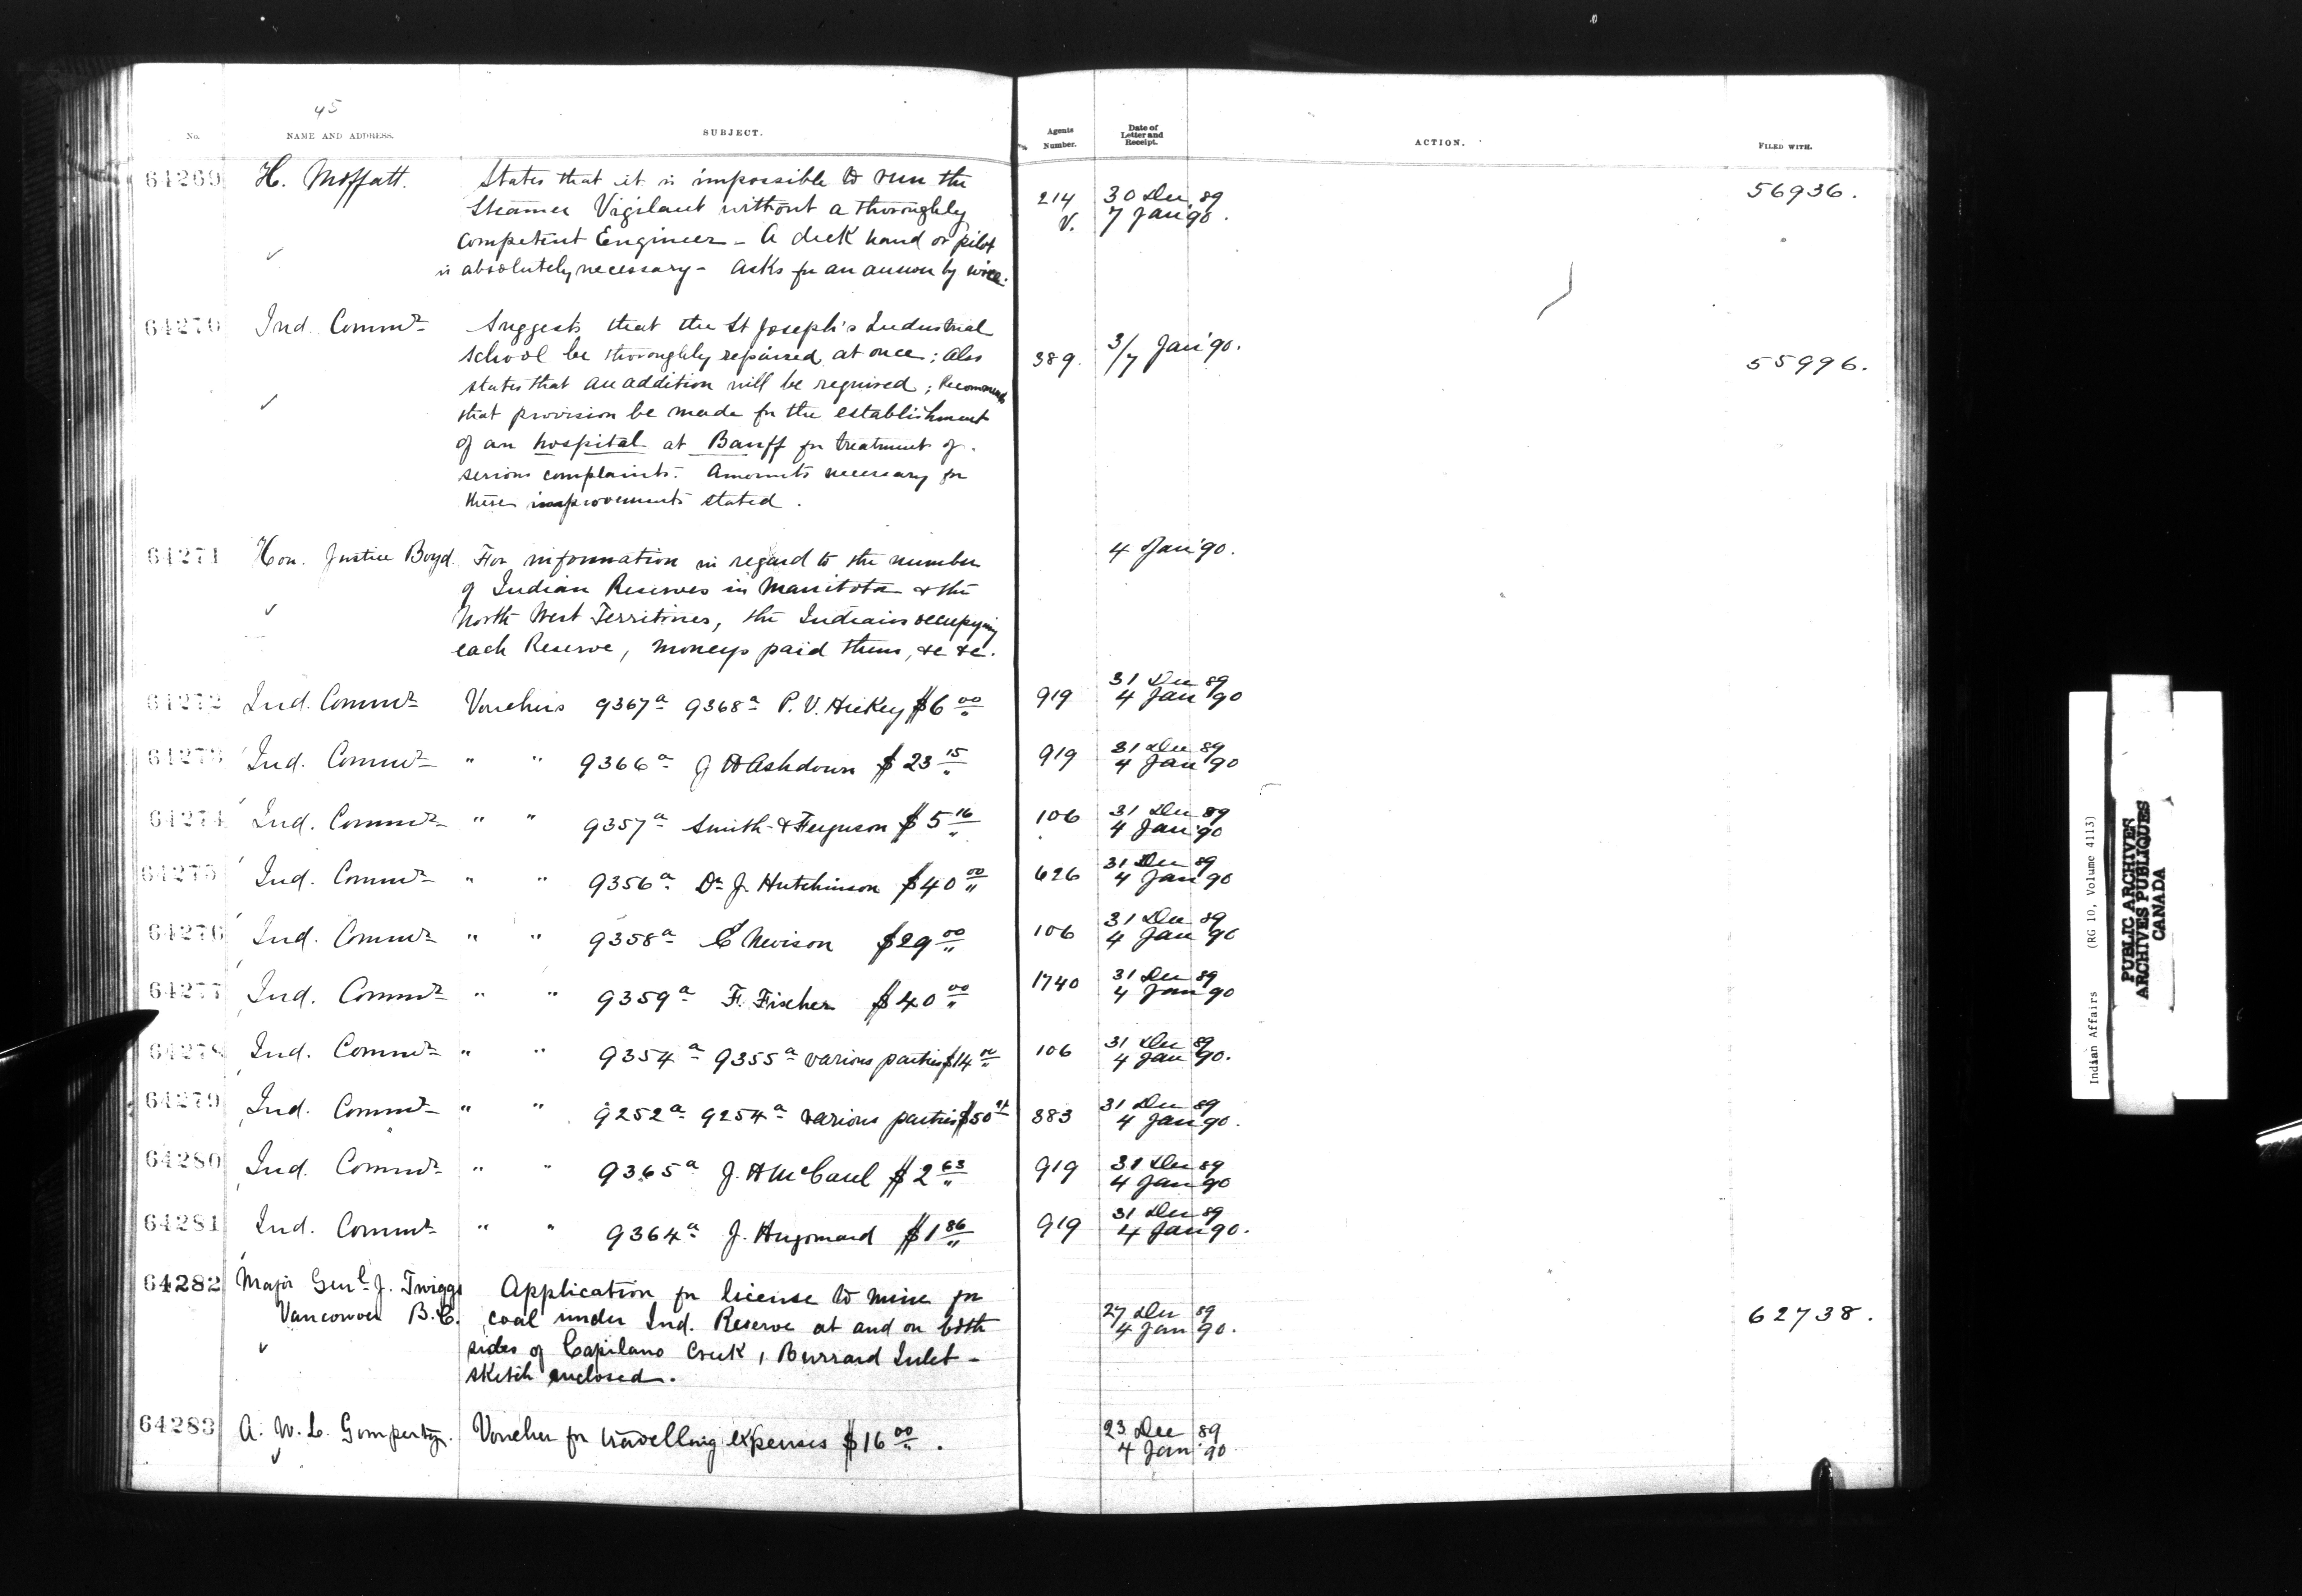 45
No. NAME AND ADDRESS. SUBJECT. Agents Number. Date of Letter and Receipt. ACTION. FILED WITH.
64269 H. Moffatt. States that it is impossible to run the 214 30 Dec 89 56936.
Steamer Vigilant without a thoroughly V. 7 Jan 90.
competent Engineer - A deck hand or pilot
is absolutely necessary - Asks for an answer by wire.
64270 Ind. Commr Suggests that the St Joseph's Industrial
School be thoroughly repaired at once; also 389. 3/7 Jan '90. 55996.
states that an addition will be required; Recommends
that provision be made for the establishment
of an hospital at Banff for treatment of
serious complaints. Amounts necessary for
these improvements stated.
64271 Hon. Justice Boyd For information in regard to the number 4 Jan '90.
of Indian Reserves in Manitoba & the
North West Territories, the Indians occupying
each Reserve, moneys paid them, &c &c.
64272 Ind. Commr Vouchers 9367a 9368a P. V. Hickey $6 00 919 31 Dec 89
4 Jan 90
64273 Ind. Commr " " 9366a J H Ashdown $23 15 919 31 Dec 89
4 Jan 90
64274 Ind. Commr " " 9357a Smith & Ferguson $5 16 106 31 Dec 89
4 Jan 90
64275 Ind. Commr " " 9356a Dr J. Hutchinson $40 00 626 31 Dec 89
4 Jan 90
64276 Ind. Commr " " 9358a E Nevison $29 00 106 31 Dec 89
4 Jan 90
64277 Ind. Commr " " 9359a F. Fischer $40 00 1740 31 Dec 89
4 Jan 90
64278 Ind. Commr " " 9354a 9355a various parties $14 106 31 Dec 89
4 Jan 90.
64279 Ind. Commr " " 9252a 9254a various parties $50 383 31 Dec 89
4 Jan 90.
64280 Ind. Commr " " 9365a J. H McCaul $2 63 919 31 Dec 89
4 Jan 90
64281 Ind. Commr " " 9364a J. Hugonard $1 86 919 31 Dec 89
4 Jan 90.
64282 Major Genl J. Twigge Application for license to mine for
Vancouver B.C. coal under Ind. Reserve at and on both 27 Dec 89 62738.
sides of Capilano Creek, Burrard Inlet - 4 Jan 90.
sketch enclosed.
64283 A. W. L. Gompertz. Voucher for travelling expenses $16 00. 23 Dec 89
4 Jan 90
Indian Affairs (RG 10, Volume 4113)
PUBLIC ARCHIVES
ARCHIVES PUBLIQUES
CANADA